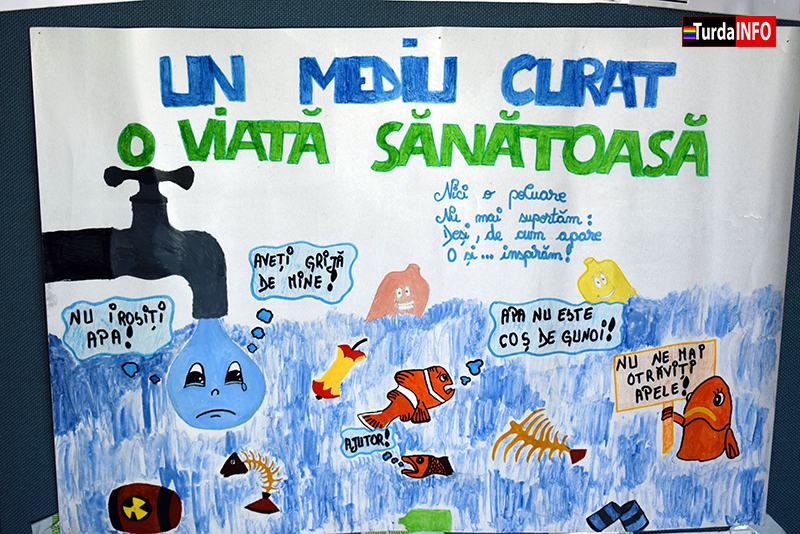 TurdaINFO
UN MEDIU CURAT
O VIATĂ SĂNĂTOASĂ
Nici o poluare
Nu mai suportăm:
Deși, de cum apare
O și... inspirăm!
AVEȚI GRIJĂ
DE MINE!
NU IROSIȚI
APA!
APA NU ESTE
COȘ DE GUNOI!
NU NE MAI
OTRĂVIȚI
APELE!
AJUTOR!